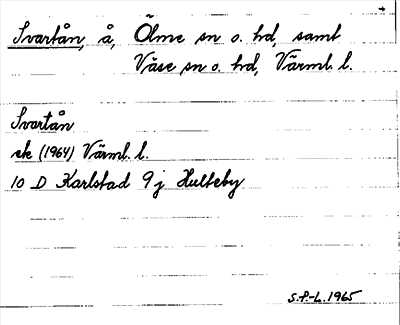 Svartån, å, Ölme sn o. hd, samt
Väse sn o. hd, Värml. l.
Svartån
ek (1964) Värml. l.
10 D Karlstad 9j Hulteby
S.P.-L. 1965